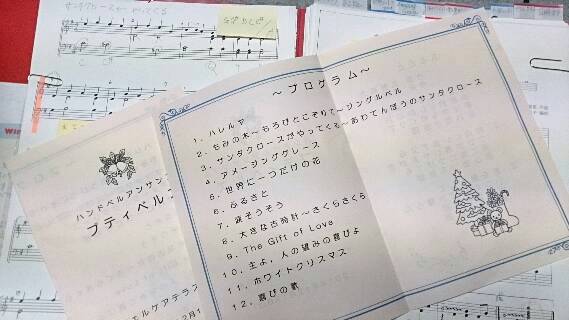 サンタクロースがやってくる
～プログラム～
1. ハレルヤ
2. もみの木～もろびとこぞりて～ジングルベル
3. サンタクロースがやってくる～あわてんぼうのサンタクロース
4. アメージンググレース
5. 世界に一つだけの花
6. ふるさと
7. 涙そうそう
8. 大きな古時計～さくらさくら
9. The Gift of Love
10. 主よ、人の望みの喜びよ
11. ホワイトクリスマス
12. 喜びの歌
ハンドベルアンサン
プティベル
ェルケアテラ
12月1
Win